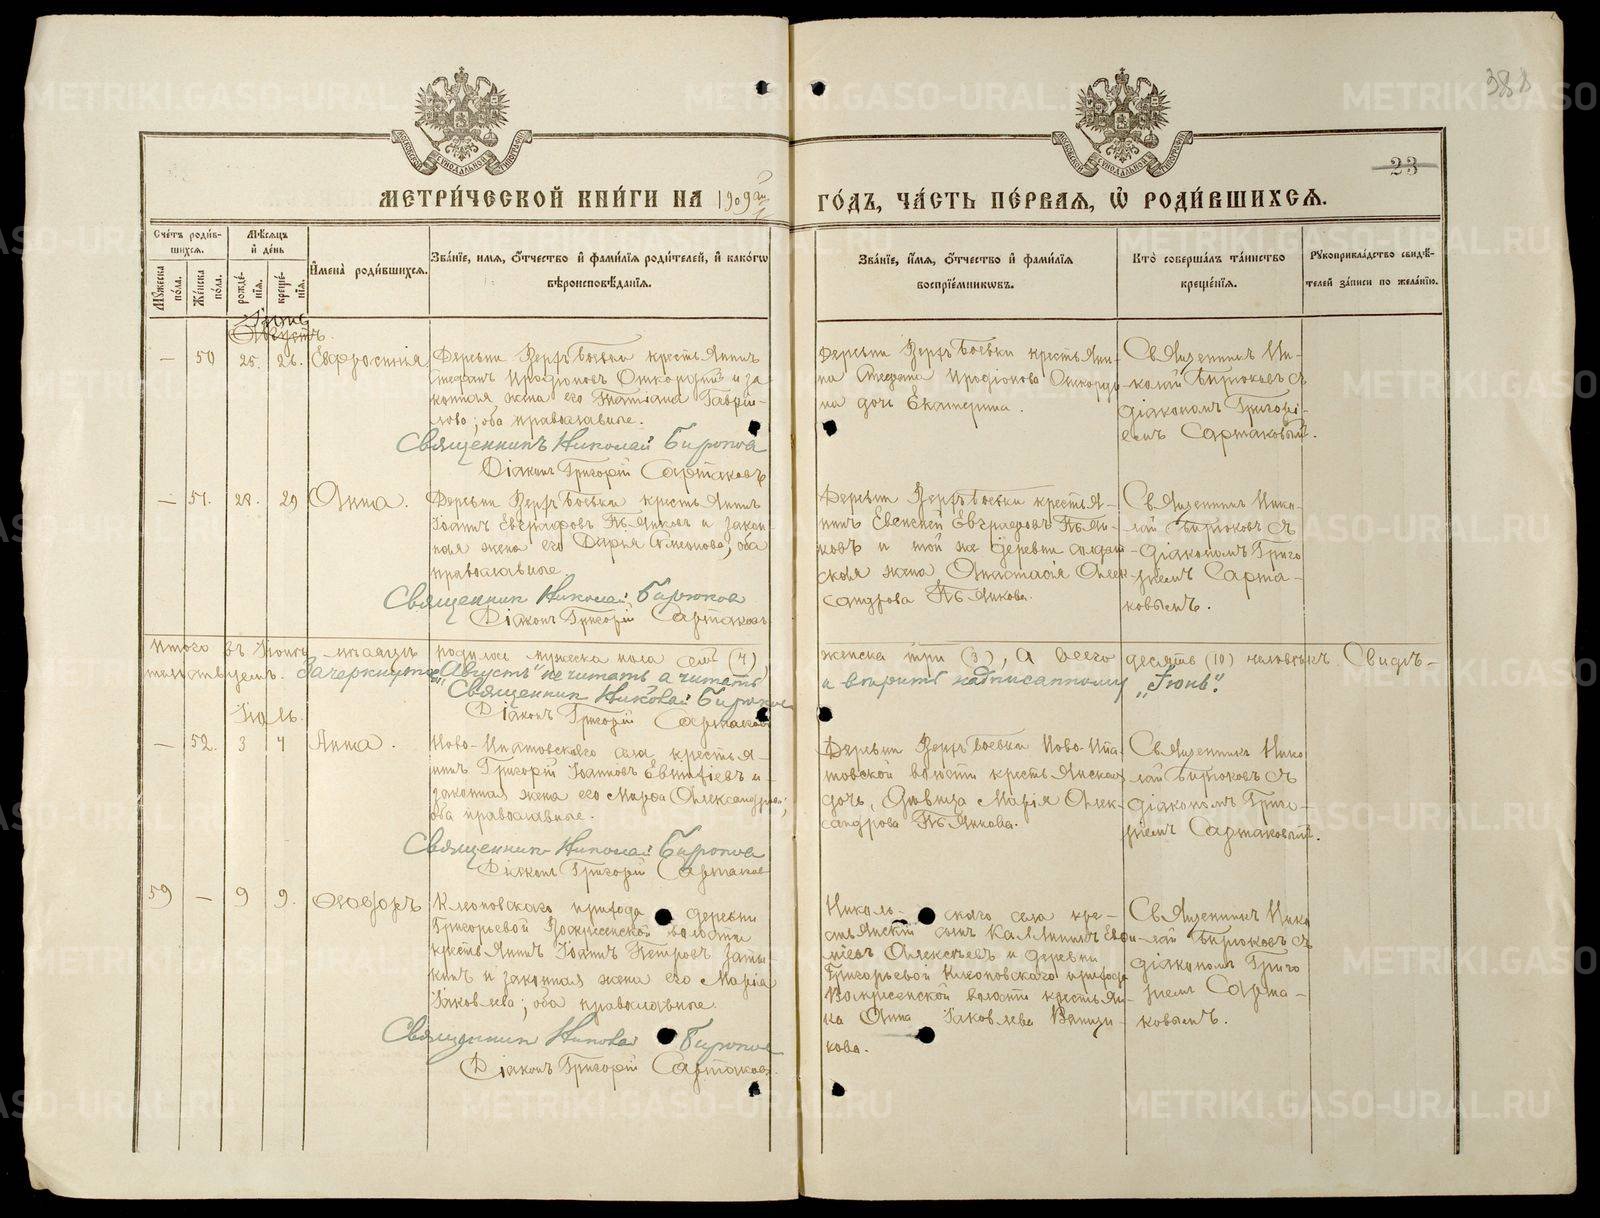 388
23
МЕТРИ́ЧЕСКОЙ КНИ́ГИ НА 1909 й
ГО́ДЪ, ЧА́СТЬ ПЕ́РВАЯ, Ѡ РОДИ́ВШИХСЯ.
Сче́тъ роди́в-
шихся.
Мѣ́сяцъ
и́ де́нь
Му́жеска по́ла.
Же́нска по́ла.
рожде́-
нія.
креще́-
нія.
И҆мена̀ роди́вшихся.
Зва́ніе, и́мя, ѻ҆́тчество и҆ фами́лія роди́телей, и҆ како́гѡ
вѣроисповѣ́данія.
Зва́ніе, и҆́мя, ѻ҆́тчество и҆ фами́лія
воспріе́мникѡвъ.
Кто̀ соверша́лъ та́инство
креще́нія.
Рукоприкла́дство свидѣ́-
телей за́писи по жела́нію.
Іюнь
Августъ.
— 50 25. 26. Евфросинія
Деревни Верхъ Боевки крестьянинъ
Стефанъ Иродіоновъ и за
конная жена его Татіана Гаврiи-
лова; оба православные.
Священникъ Николай Бирюков
Діаконъ Григорій Сартаковъ
Деревни Верхъ Боевки крестьяни-
на Стефана Иродіонова
на дочь Екатерина.
Священникъ Ни-
колай Бирюковъ съ
діакономъ Григорі-
емъ Сартаковымъ.
— 51. 28. 29 Анна.
Деревни Верхъ Боевки крестьянинъ
Іоаннъ Евграфовъ Пьянковъ и закон-
ная жена его Дарья Симеонова; оба
православные
Священник Николай Бирюков
Діаконъ Григорій Сартаковъ
Деревни Верхъ Боевки крестья-
нинъ Евгеній Евграфовъ Пьян-
ковъ и той же деревни солдат-
ская жена Анастасія Алек-
сандрова Пьянкова.
Священникъ Нико-
лай Бирюковъ съ
діакономъ Григо
ріемъ Сарта-
ковымъ.
Итого въ Іюнѣ мѣсяцѣ родилось мужеска пола семь (7),
женска три (3), а всего десять (10) человѣкъ. Свидѣ-
тельствуемъ. Зачеркнутое „Августъ" не читать а читать
и вѣрить надписанному „Іюнь".
Священник Николай Бирюков
Діаконъ Григорій Сартаковъ
Іюль.
— 52. 3 4 Анна.
Ново-Ипатовскаго села крестья-
нинъ Григорій Іоанновъ Евтифіевъ и
законная жена его Марѳа Александрова;
оба православные.
Священник Николай Бирюков
Діаконъ Григорій Сартаков
Деревни Верхъ Боевки Ново-Ипа-
товской волости крестьянская
дочь, дѣвица Марія Алек-
сандрова Пьянкова.
Священникъ Нико
лай Бирюковъ съ
діакономъ Григо-
ріемъ Сартаковымъ.
59 — 9 9. Ѳеодоръ
Клеоповскаго прихода деревни
Григорьевой Воскресенской волости
крестьянинъ Іоаннъ Петровъ Заты-
кинъ и законная жена его Марія
Іаковлева; оба православные.
Священник Николай Бирюков
Діаконъ Григорій Сартаковъ.
Николь- скаго села кре-
стьянскій сынъ Каллиникъ
Алексѣевъ и деревни
Григорьевой Клеоповскаго прихода
Воскресенской волости крестьян-
ка Анна Іаковлева
кова.
Священникъ Нико
лай Бирюковъ съ
діакономъ Григо
ріемъ Сарта-
ковымъ.
METRIKI.GASO-URAL.RU